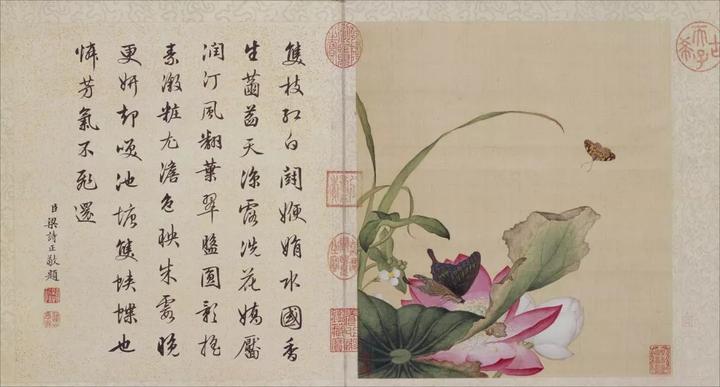 雙枝紅白鬪㛹娟水國香
生菡萏天涼露洗花嬌靨
潤汀風翻葉翠盤圓影搖
素瀲粧尤澹色映朱霞晚
更妍却喚池塘雙蛺蝶也
憐芳氣不飛還
臣梁詩正敬題
古希天子